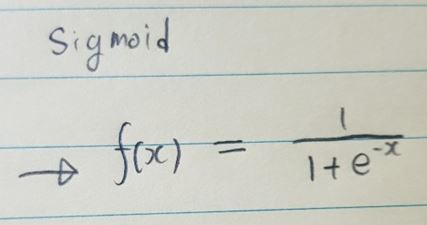 Sigmoid
→ f(x) = 1 / (1 + e^{-x})